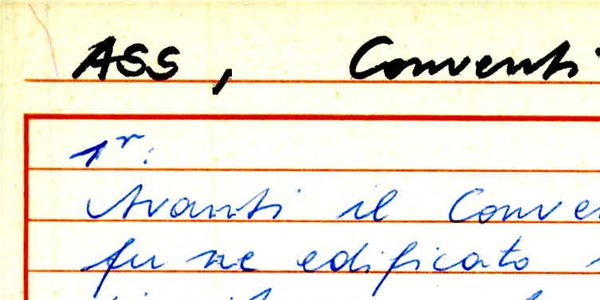 ASS, Conventi
1r:
Avanti il Conve
fu ne edificato